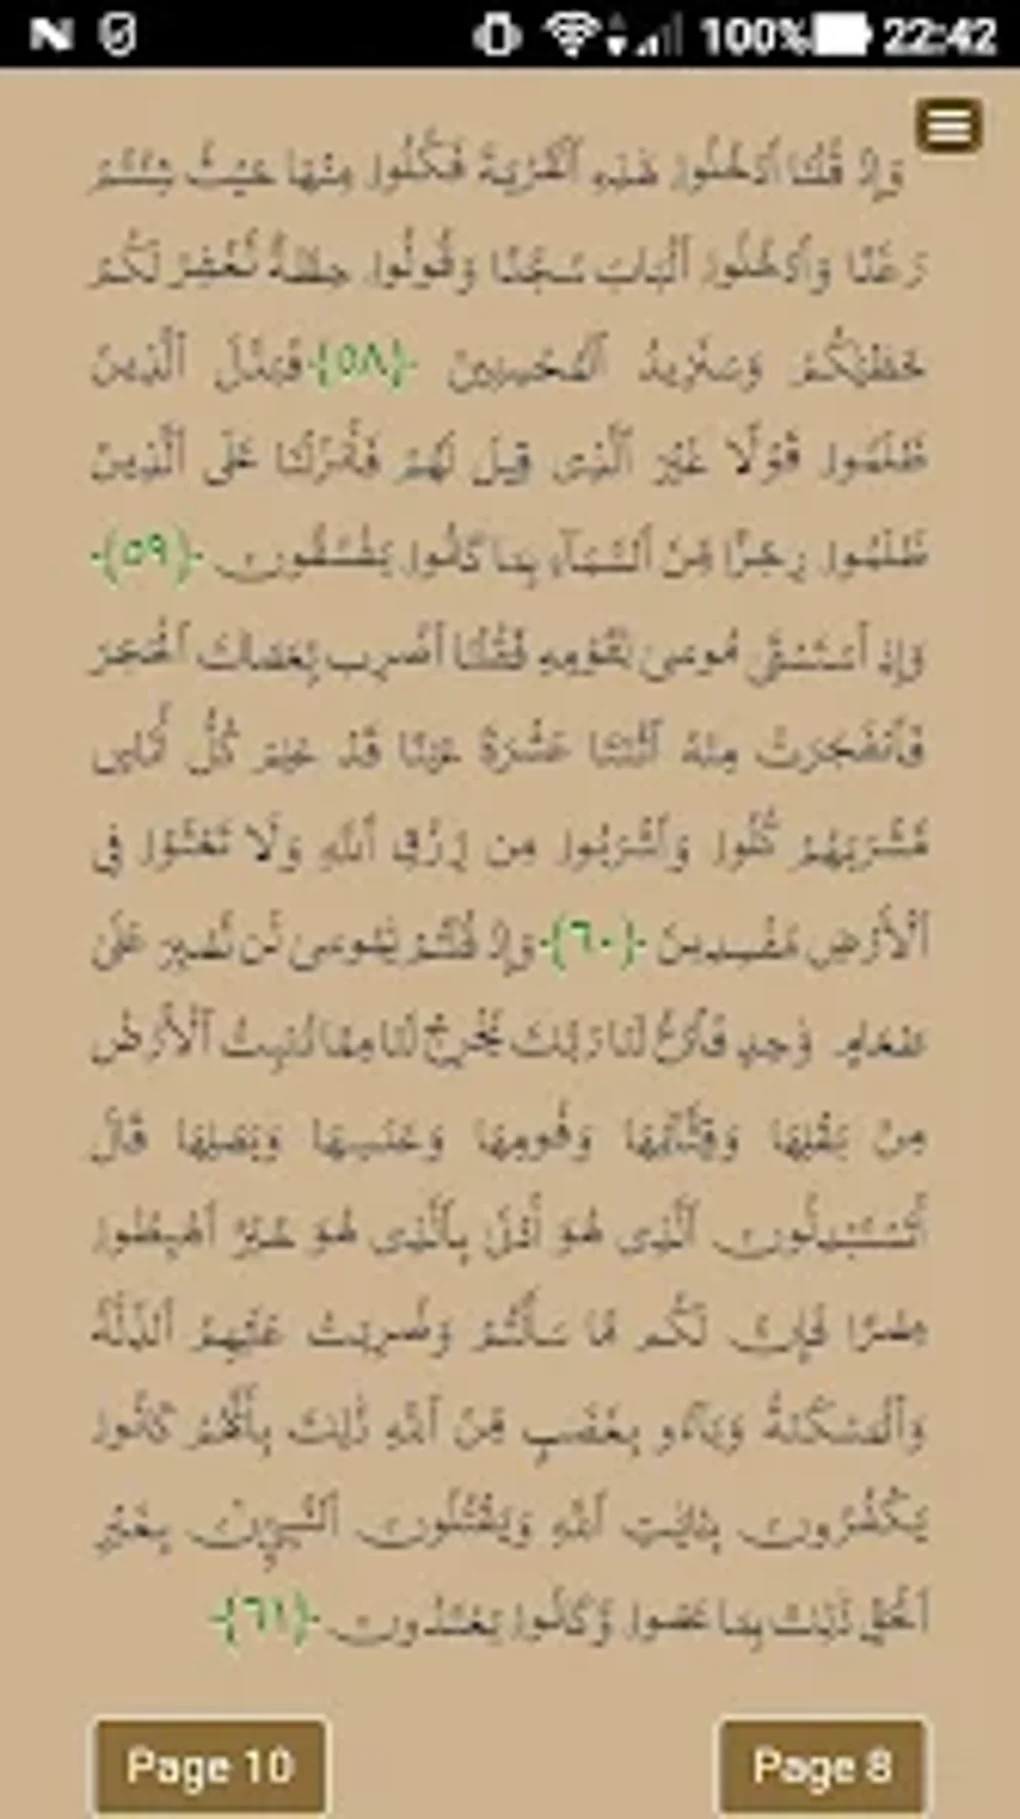 100% 22:42
وَإِذْ قُلْنَا ٱدْخُلُوا۟ هَٰذِهِ ٱلْقَرْيَةَ فَكُلُوا۟ مِنْهَا حَيْثُ شِئْتُمْ
رَغَدًا وَٱدْخُلُوا۟ ٱلْبَابَ سُجَّدًا وَقُولُوا۟ حِطَّةٌ نَّغْفِرْ لَكُمْ
خَطَٰيَٰكُمْ وَسَنَزِيدُ ٱلْمُحْسِنِينَ ﴿٥٨﴾ فَبَدَّلَ ٱلَّذِينَ
ظَلَمُوا۟ قَوْلًا غَيْرَ ٱلَّذِى قِيلَ لَهُمْ فَأَنزَلْنَا عَلَى ٱلَّذِينَ
ظَلَمُوا۟ رِجْزًا مِّنَ ٱلسَّمَآءِ بِمَا كَانُوا۟ يَفْسُقُونَ ﴿٥٩﴾
وَإِذِ ٱسْتَسْقَىٰ مُوسَىٰ لِقَوْمِهِۦ فَقُلْنَا ٱضْرِب بِّعَصَاكَ ٱلْحَجَرَ
فَٱنفَجَرَتْ مِنْهُ ٱثْنَتَا عَشْرَةَ عَيْنًا قَدْ عَلِمَ كُلُّ أُنَاسٍ
مَّشْرَبَهُمْ كُلُوا۟ وَٱشْرَبُوا۟ مِن رِّزْقِ ٱللَّهِ وَلَا تَعْثَوْا۟ فِى
ٱلْأَرْضِ مُفْسِدِينَ ﴿٦٠﴾ وَإِذْ قُلْتُمْ يَٰمُوسَىٰ لَن نَّصْبِرَ عَلَىٰ
طَعَامٍ وَٰحِدٍ فَٱدْعُ لَنَا رَبَّكَ يُخْرِجْ لَنَا مِمَّا تُنۢبِتُ ٱلْأَرْضُ
مِنۢ بَقْلِهَا وَقِثَّآئِهَا وَفُومِهَا وَعَدَسِهَا وَبَصَلِهَا قَالَ
أَتَسْتَبْدِلُونَ ٱلَّذِى هُوَ أَدْنَىٰ بِٱلَّذِى هُوَ خَيْرٌ ٱهْبِطُوا۟
مِصْرًا فَإِنَّ لَكُم مَّا سَأَلْتُمْ وَضُرِبَتْ عَلَيْهِمُ ٱلذِّلَّةُ
وَٱلْمَسْكَنَةُ وَبَآءُو بِغَضَبٍ مِّنَ ٱللَّهِ ذَٰلِكَ بِأَنَّهُمْ كَانُوا۟
يَكْفُرُونَ بِـَٔايَٰتِ ٱللَّهِ وَيَقْتُلُونَ ٱلنَّبِيِّـۧنَ بِغَيْرِ
ٱلْحَقِّ ذَٰلِكَ بِمَا عَصَوا۟ وَّكَانُوا۟ يَعْتَدُونَ ﴿٦١﴾
Page 10 Page 8